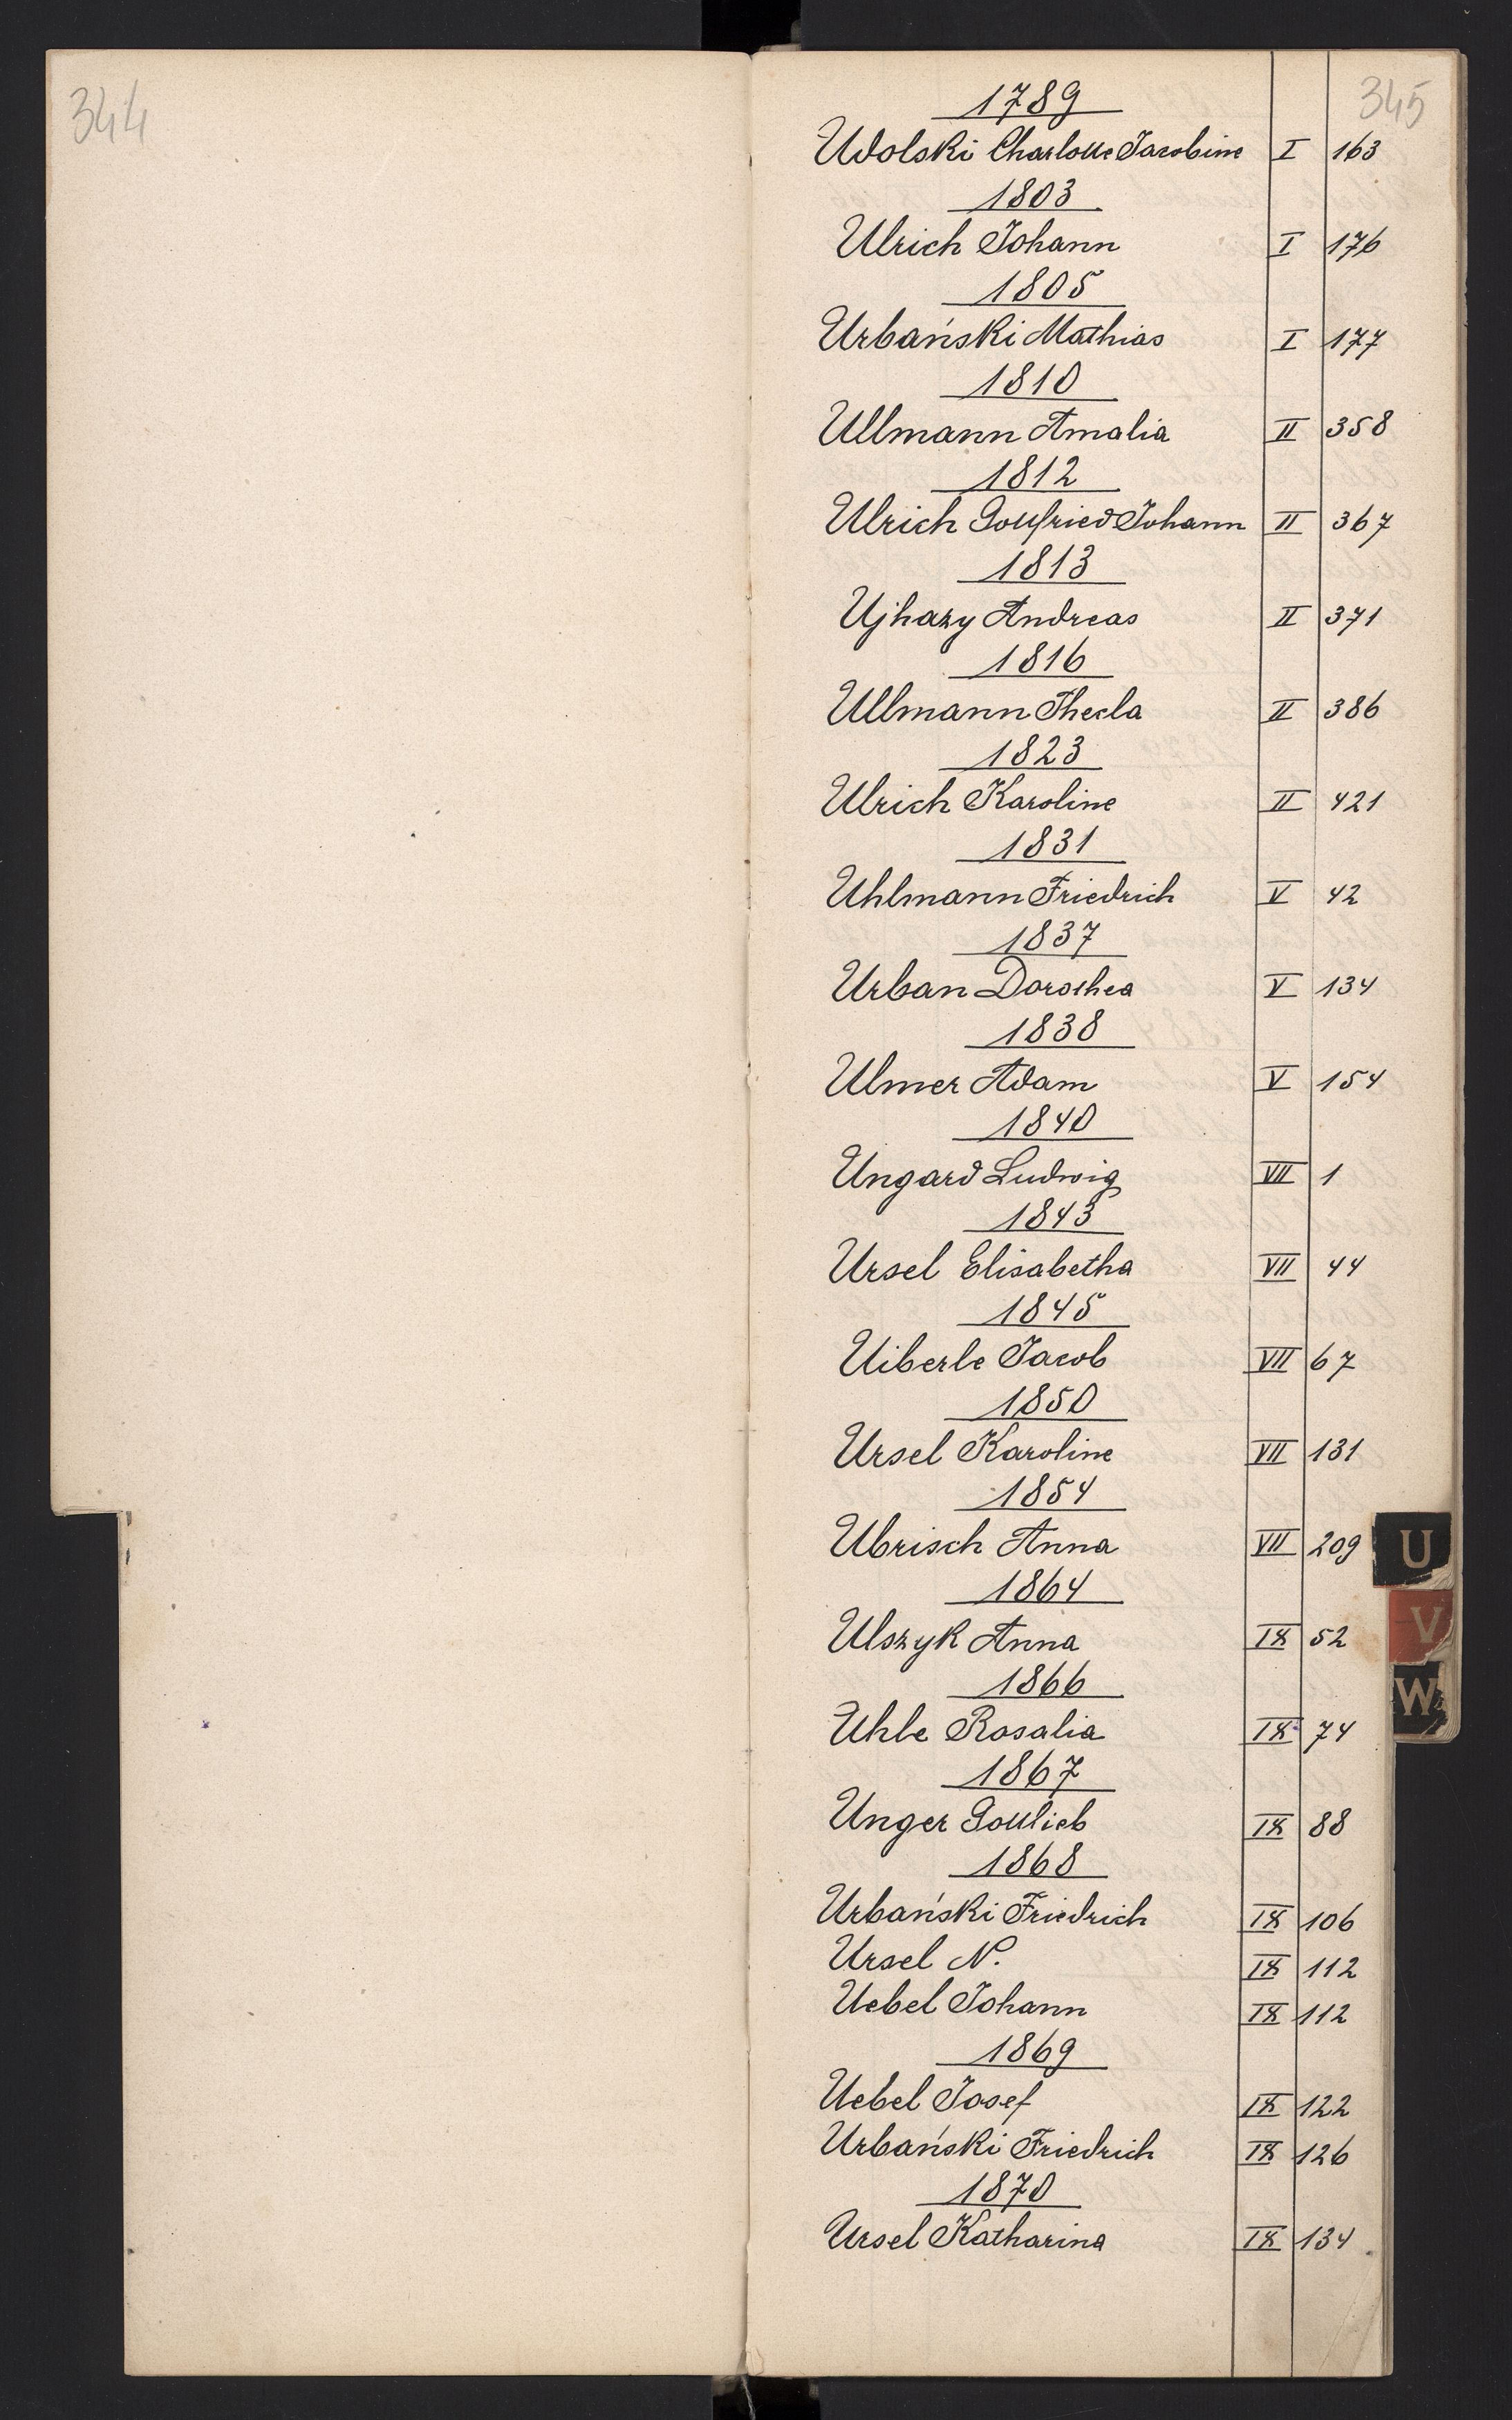 344
345
1789
Udolski Charlotte Jacobine I 163
1803
Ulrich Johann I 176
1805
Urbański Mathias I 177
1810
Ullmann Amalia II 358
1812
Ulrich Gottfried Johann II 367
1813
Ujhazy Andreas II 371
1816
Ullmann Thecla II 386
1823
Ulrich Karoline II 421
1831
Uhlmann Friedrich V 42
1837
Urban Dorothea V 134
1838
Ulmer Adam V 154
1840
Ungard Ludwig VII 1
1843
Ursel Elisabetha VII 44
1845
Uiberle Jacob VII 67
1850
Ursel Karoline VII 131
1854
Ubrisch Anna VII 209
U
1864
V
Ulszyk Anna IX 52
1866
W
Uhle Rosalia IX 74
1867
Unger Gottlieb IX 88
1868
Urbański Friedrich IX 106
Ursel N. IX 112
Uebel Johann IX 112
1869
Uebel Josef IX 122
Urbański Friedrich IX 126
1870
Ursel Katharina IX 134